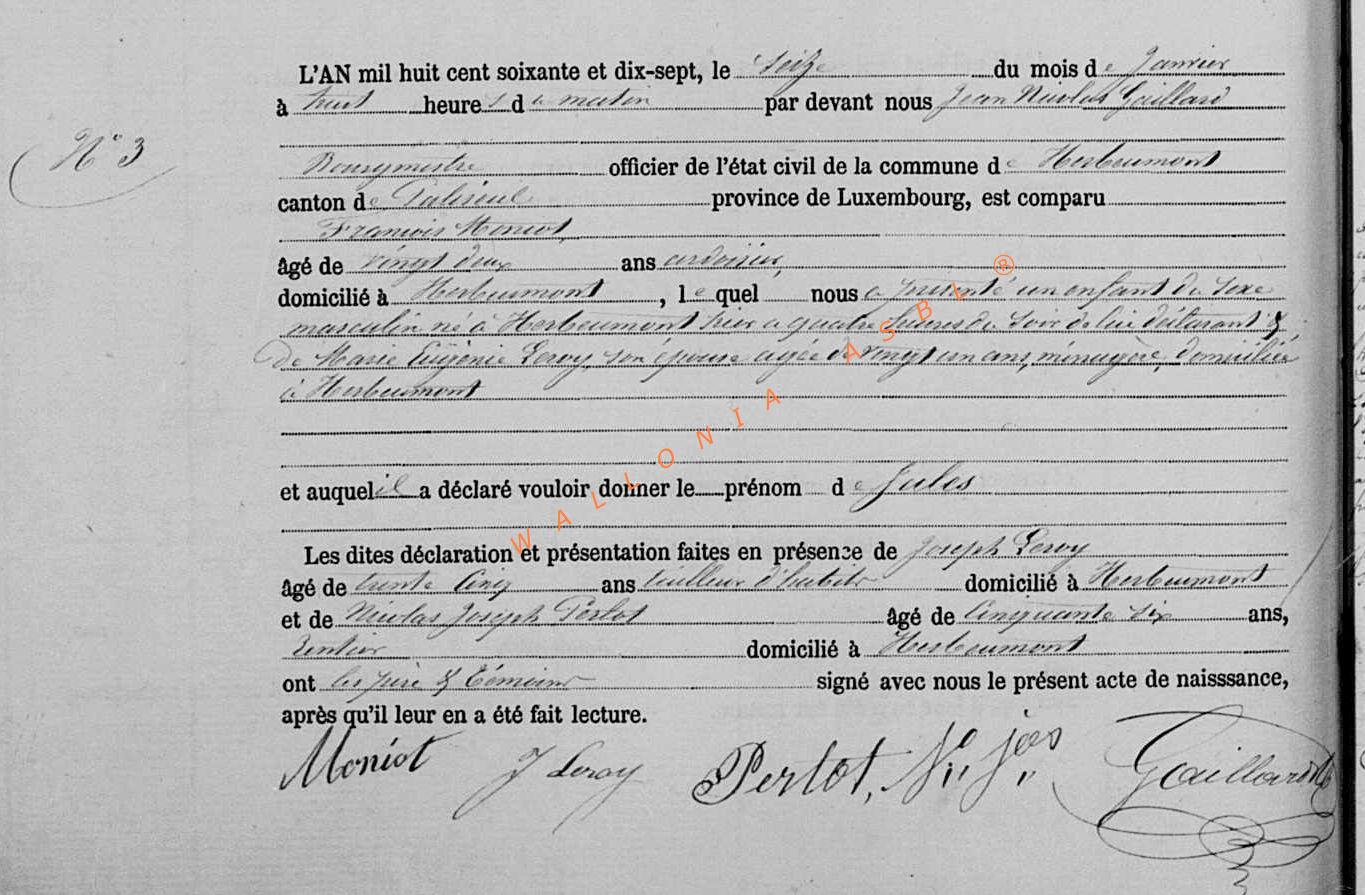 L'AN mil huit cent soixante et dix-sept, le seize du mois de Janvier
à huit heures du matin par devant nous Jean Nicolas Gaillard
N° 3
Bourgmestre officier de l'état civil de la commune de Herbeumont
canton de Paliseul province de Luxembourg, est comparu
François Moniot,
âgé de vingt deux ans ardoisier,
domicilié à Herbeumont, lequel nous a présenté un enfant du sexe
masculin né à Herbeumont hier a quatre heures du soir de lui déclarant &
de Marie Eugénie Leroy, son épouse agée de vingt un ans, ménagère, domiciliée
à Herbeumont
et auquel il a déclaré vouloir donner le prénom de Jules
Les dites déclaration et présentation faites en présence de Joseph Leroy
âgé de trente cinq ans tailleur d'habits domicilié à Herbeumont
et de Nicolas Joseph Perlot âgé de cinquante six ans,
rentier domicilié à Herbeumont
ont les père & témoins signé avec nous le présent acte de naisssance,
après qu'il leur en a été fait lecture.
Moniot J Leroy Perlot, N. Jos Gaillard
WALLONIA ASBL ®